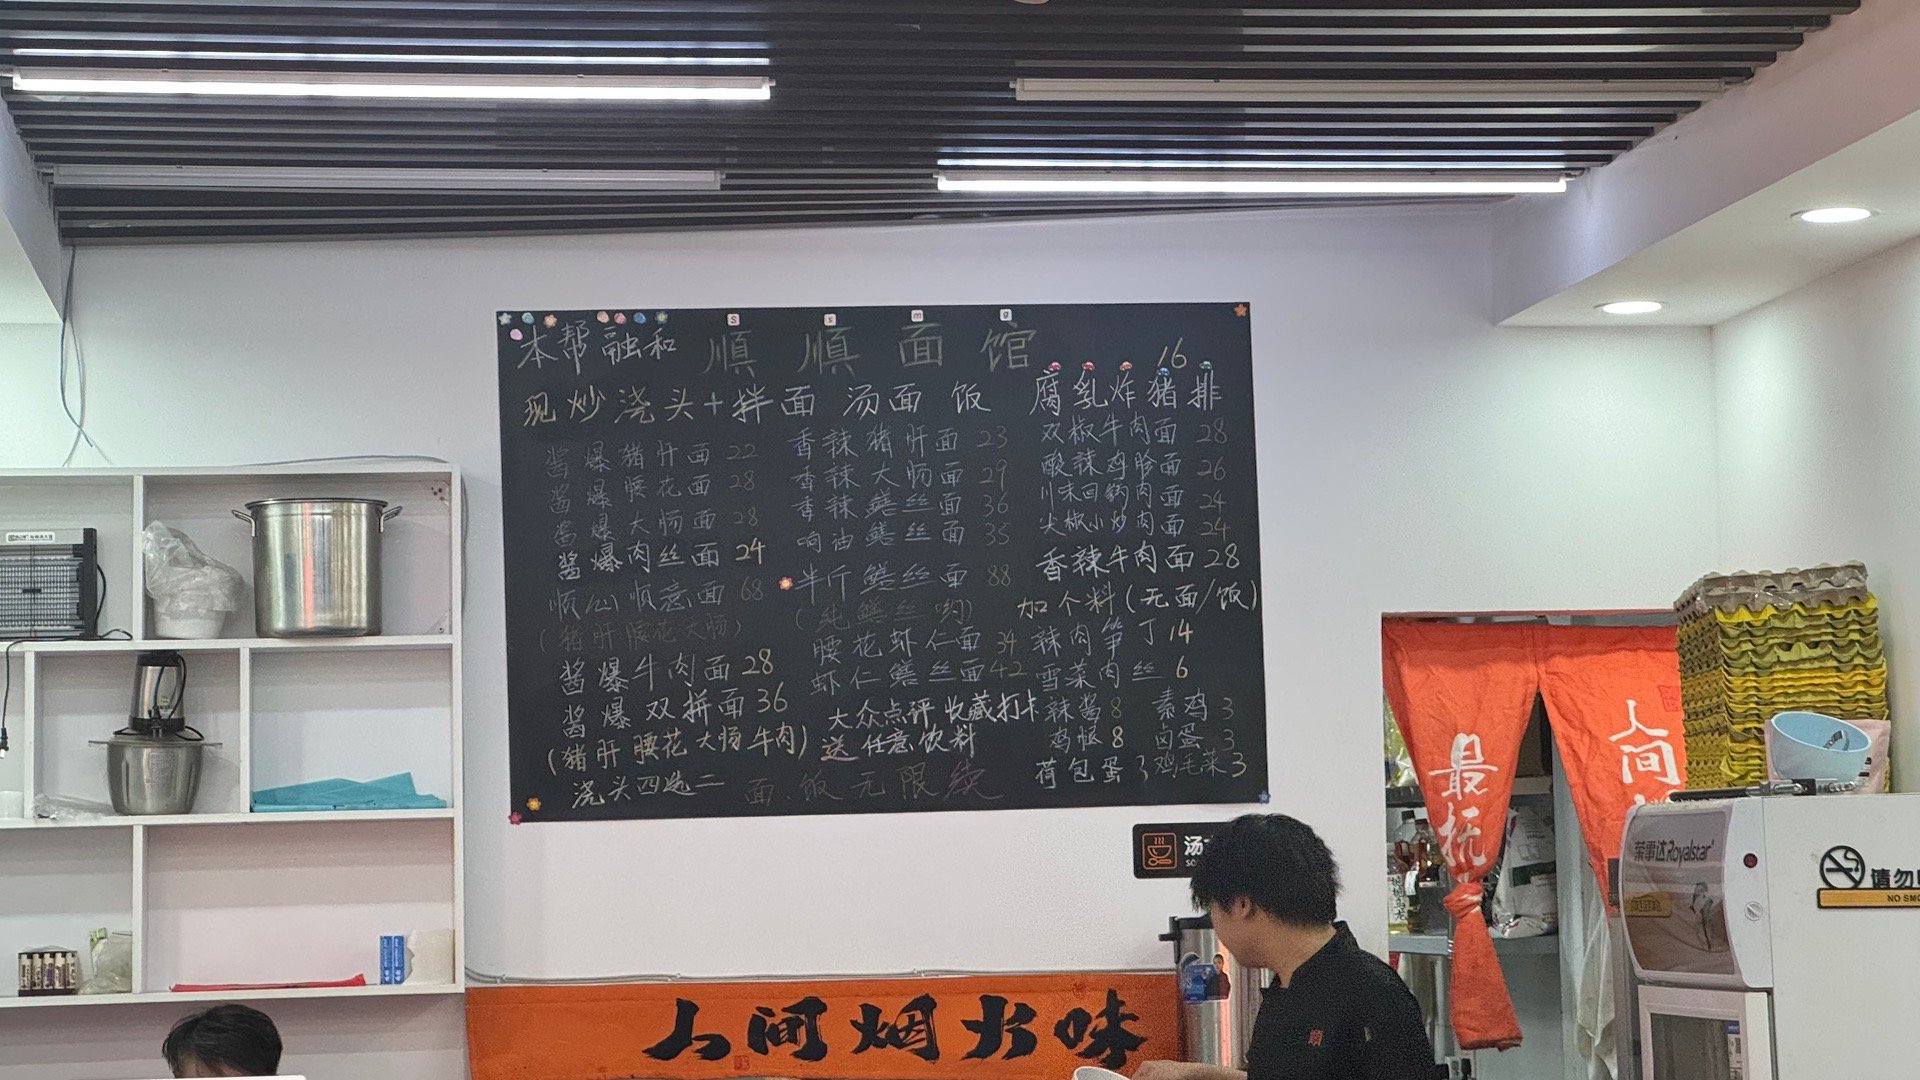 S s m g
本帮融和 顺顺面馆
现炒浇头+拌面 汤面 饭
酱爆猪肝面 22
酱爆腰花面 28
酱爆大肠面 28
酱爆肉丝面 24
顺(心)顺意面 68
(猪肝腰花大肠)
酱爆牛肉面 28
酱爆双拼面 36
(猪肝腰花大肠牛肉)
浇头四选二
香辣猪肝面 23
香辣大肠面 29
香辣鳝丝面 36
响油鳝丝面 35
半斤鳝丝面 88
(纯鳝丝哟)
腰花虾仁面 34
虾仁鳝丝面 42
大众点评收藏打卡
送任意饮料
面、饭无限续
16
腐乳炸猪排
双椒牛肉面 28
酸辣鸡胗面 26
川味回锅肉面 24
尖椒小炒肉面 24
香辣牛肉面 28
加个料(无面/饭)
辣肉笋丁 14
雪菜肉丝 6
辣酱 8 素鸡 3
鸡腿 8 卤蛋 3
荷包蛋 3 鸡毛菜 3
汤
人间烟火味
最抚
人间
荣事达Royalstar
请勿
NO SMO